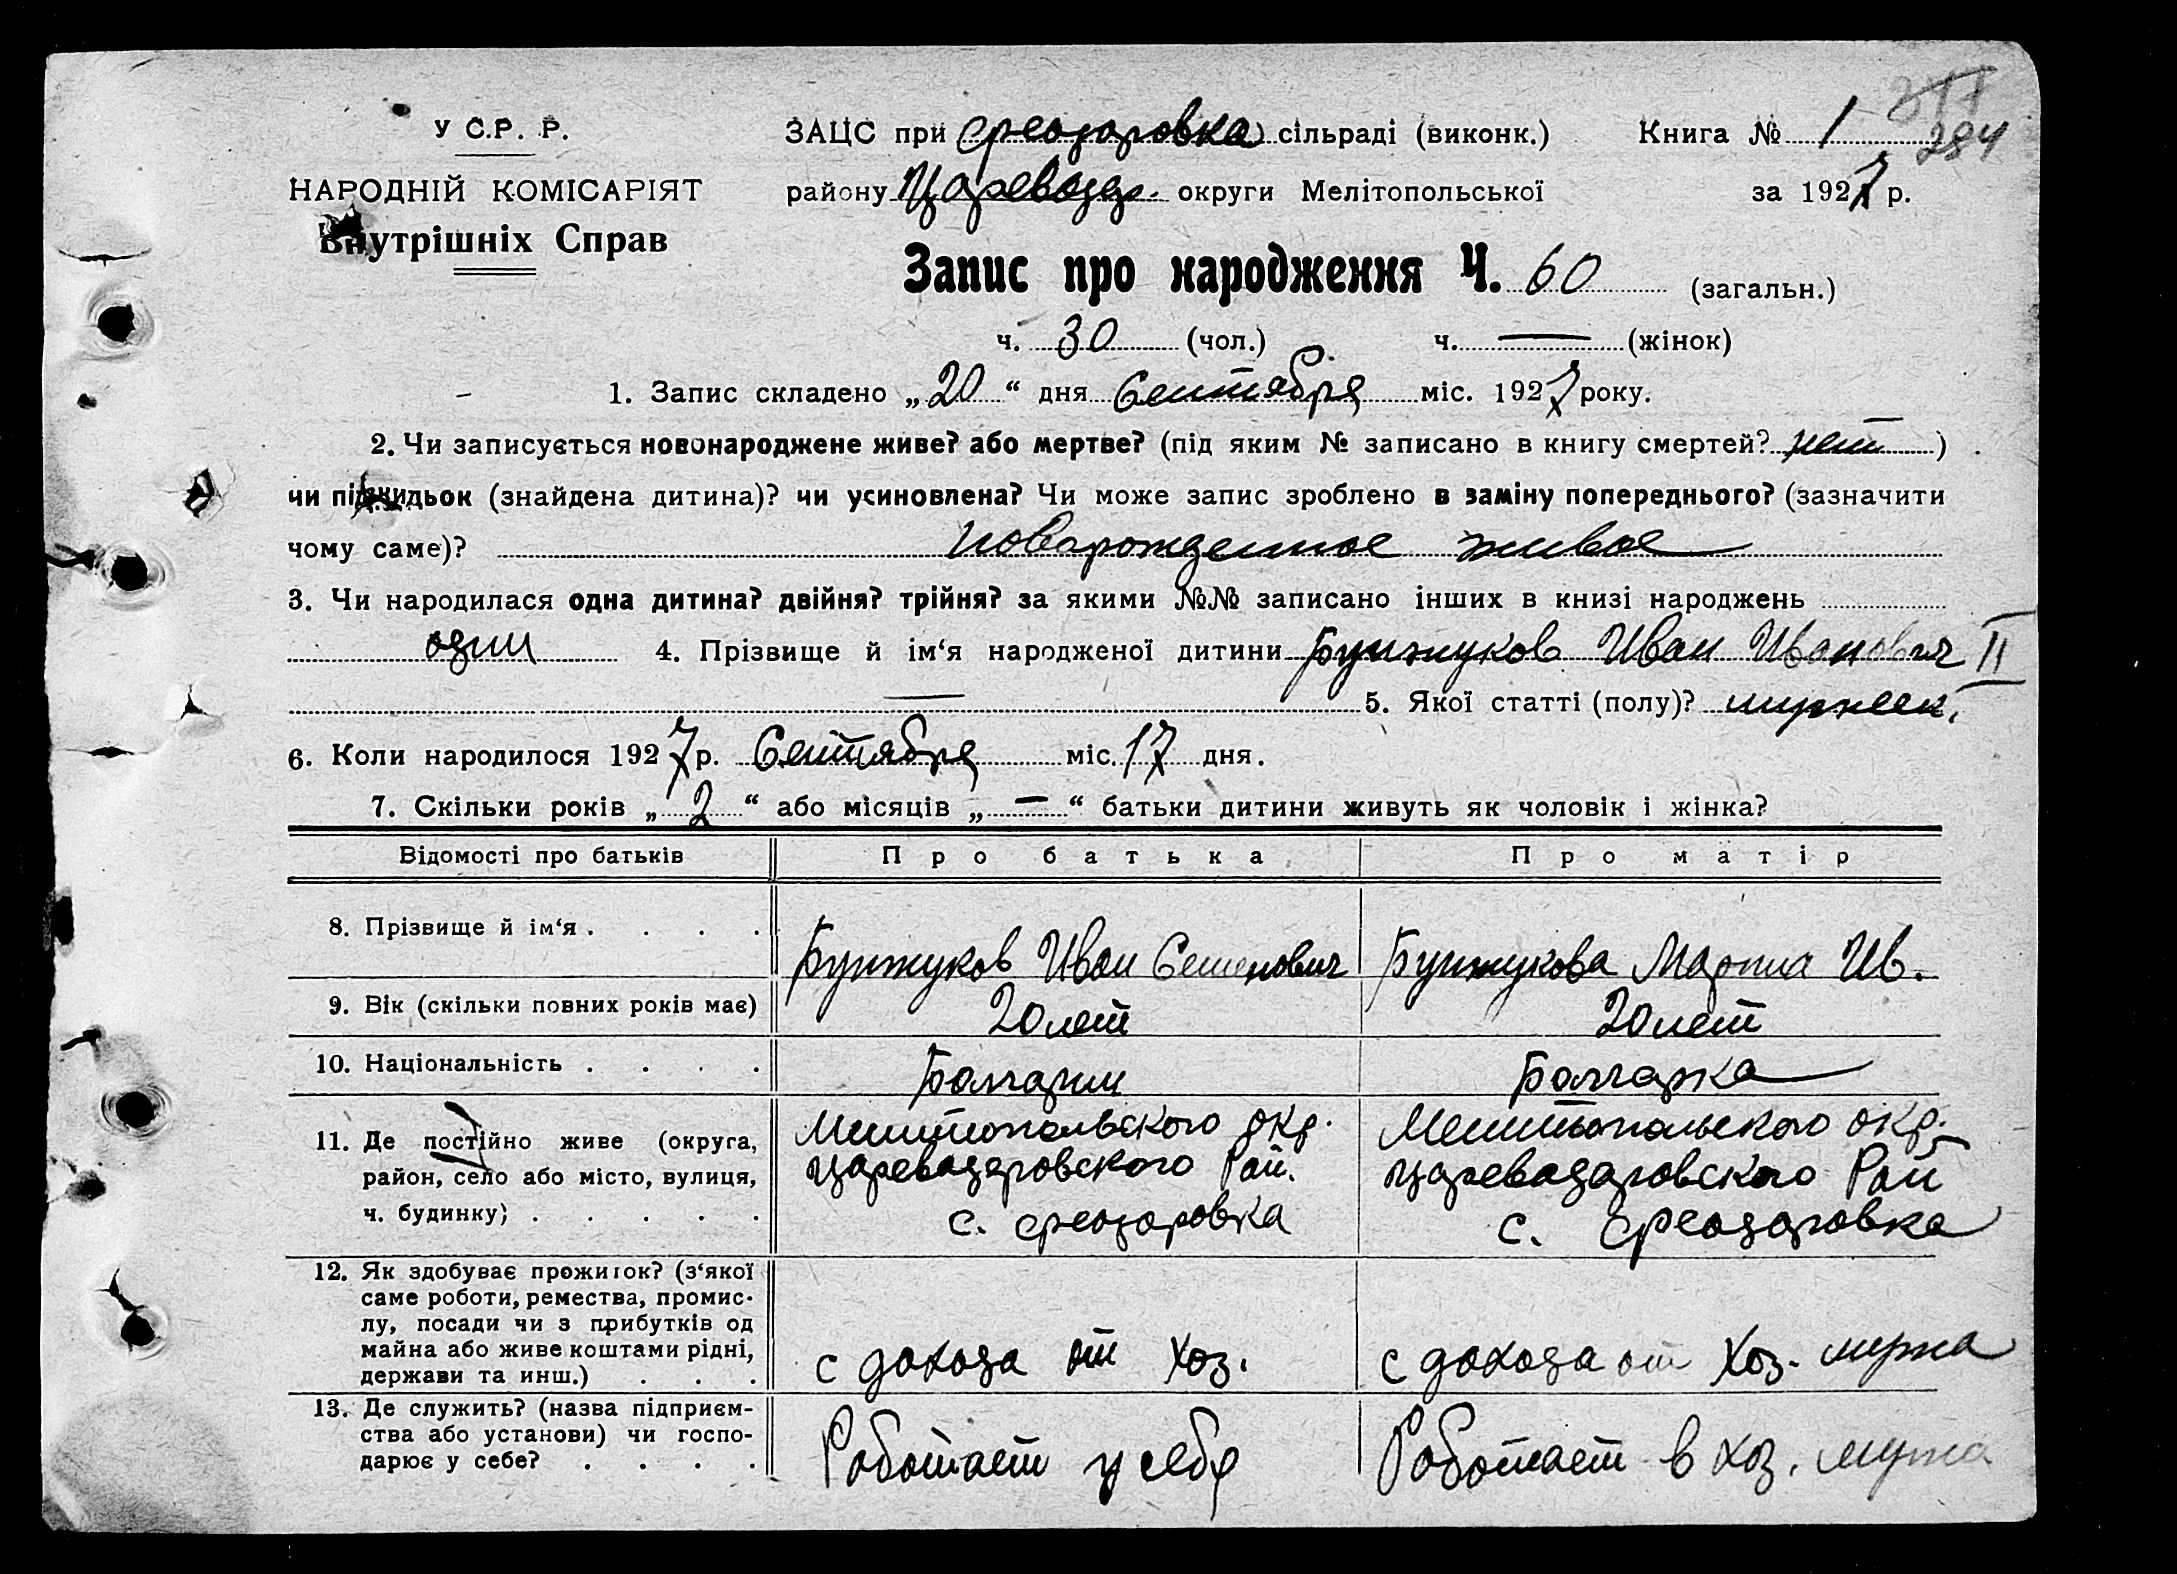 У С.Р. Р.
НАРОДНІЙ КОМІСАРІЯТ
Внутрішніх Справ
ЗАЦС при Феодоровка сільраді (виконк.) Книга № 1
284
району Цареводар. округи Мелітопольської за 1927 р.
Запис про народження Ч. 60 (загальн.)
ч. 30 (чол.) ч. — (жінок)
1. Запис складено „20“ дня Сентября міс. 1927 року.
2. Чи записується новонароджене живе? або мертве? (під яким № записано в книгу смертей? нет)
чи підкидьок (знайдена дитина)? чи усиновлена? Чи може запис зроблено в заміну попереднього? (зазначити
чому саме)? новорожденное живое
3. Чи народилася одна дитина? двійня? трійня? за якими №№ записано інших в книзі народжень
один 4. Прізвище й ім‘я народженої дитини Бунжуков Иван Иванович II
— 5. Якої статті (полу)? мужеск.
6. Коли народилося 1927 р. Сентября міс. 17 дня.
7. Скільки років „2“ або місяців „—“ батьки дитини живуть як чоловік і жінка?
Відомості про батьків Про батька Про матір
8. Прізвище й ім‘я . . . . Бунжуков Иван Семенович Бунжукова Марина Ив.
9. Вік (скільки повних років має) 20 лет 20 лет
10. Національність . . . . Болгарин Болгарка
11. Де постійно живе (округа, район, село або місто, вулиця, ч. будинку) . . . . .
Мелитопольского окр.
Цареводаровского Рай.
с. Феодоровка
Мелитопольского окр.
Цареводаровского Рай
с. Феодоровка
12. Як здобуває прожиток? (з‘якої
саме роботи, ремества, промис-
лу, посади чи з прибутків од
майна або живе коштами рідні,
держави та инш.) . . .
с дохода от хоз.
с дохода от хоз. мужа
13. Де служить? (назва підприєм-
ства або установи) чи госпо-
дарює у себе? . . . .
Роботает у себя
Роботает в хоз. мужа